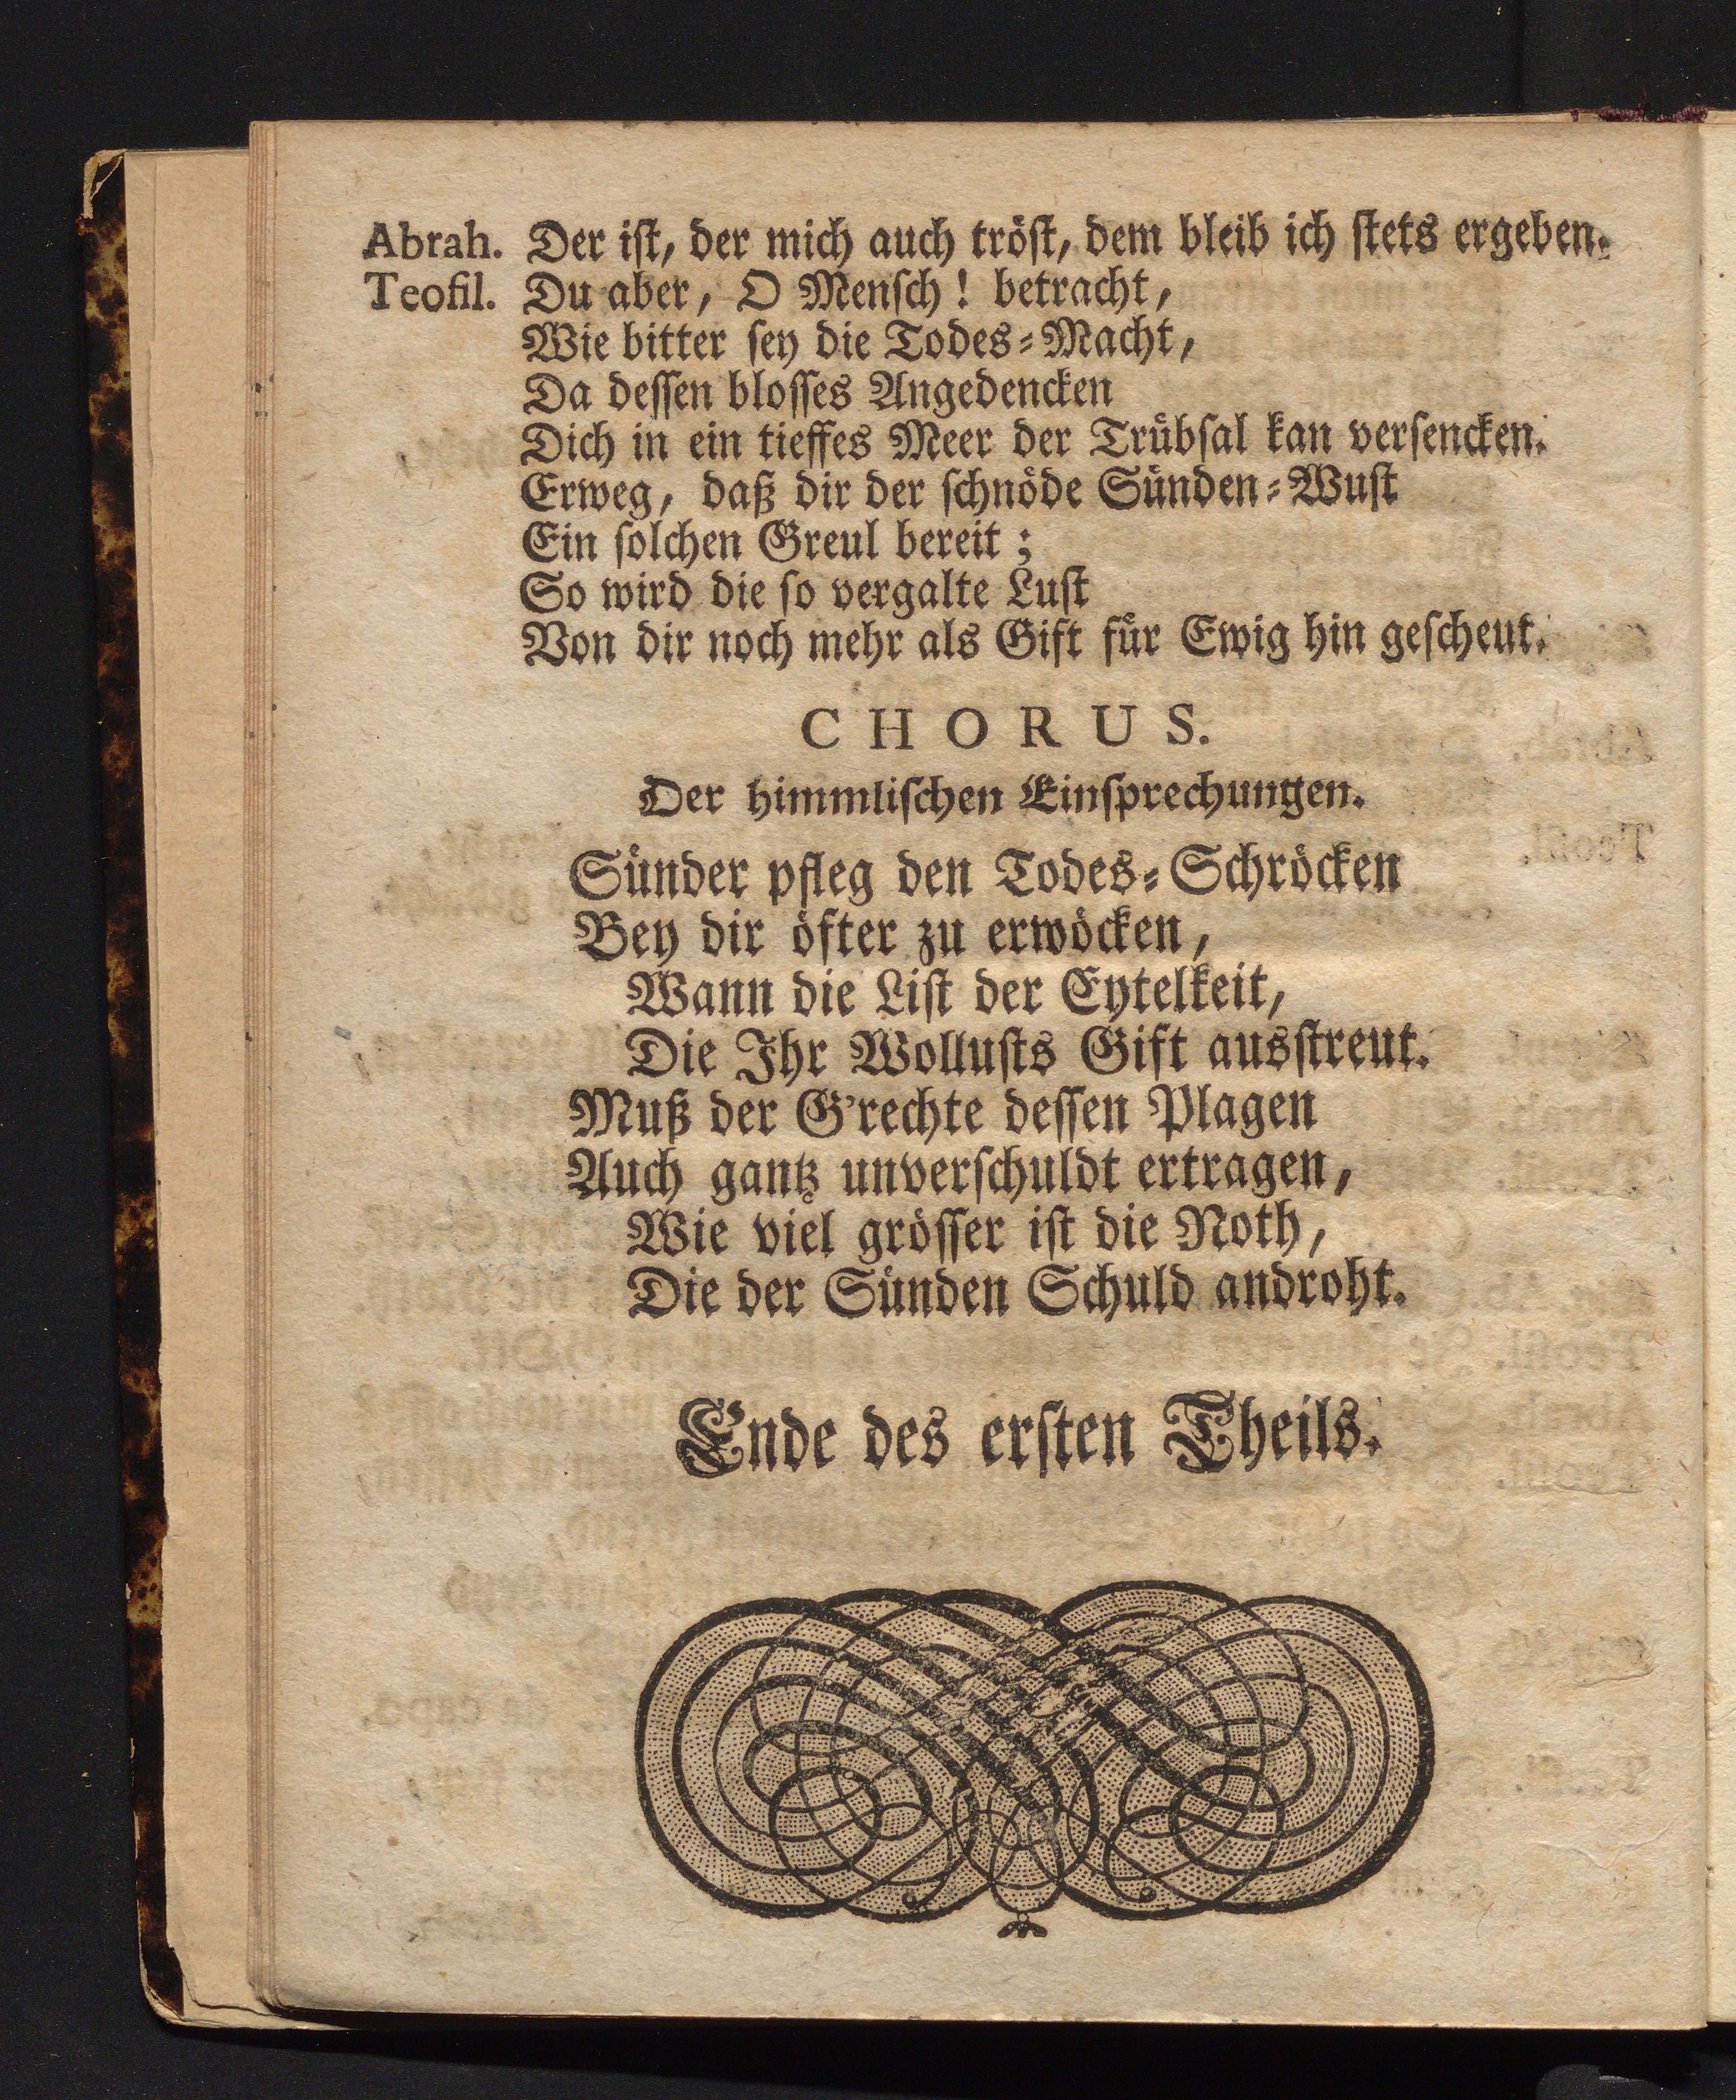 Abrah. Der iſt, der mich auch tröſt, dem bleib ich ſtets ergeben.
Teofil. Du aber, O Menſch! betracht,
Wie bitter ſey die Todes-Macht,
Da deſſen bloſſes Angedencken
Dich in ein tieffes Meer der Trübſal kan verſencken.
Erweg, daß dir der ſchnöde Sünden-Wuſt
Ein ſolchen Greul bereit;
So wird die ſo vergalte Luſt
Von dir noch mehr als Gift für Ewig hin geſcheut.
CHORUS.
Der himmliſchen Einſprechungen.
Sünder pfleg den Todes-Schröcken
Bey dir öfter zu erwöcken,
Wann die Liſt der Eytelkeit,
Die Ihr Wolluſts Gift ausſtreut.
Muß der G'rechte deſſen Plagen
Auch gantz unverſchuldt ertragen,
Wie viel gröſſer iſt die Noth,
Die der Sünden Schuld androht.
Ende des erſten Theils.